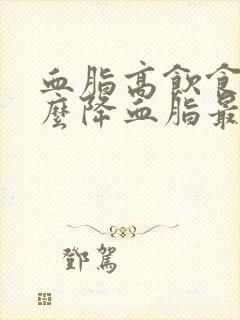 血脂高飲食
麼降血脂最
鄧駕